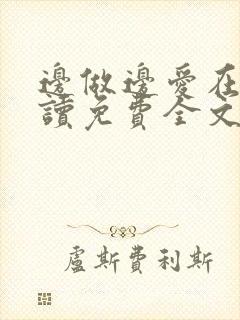 邊做邊愛在
讀免費全文
盧斯費利斯